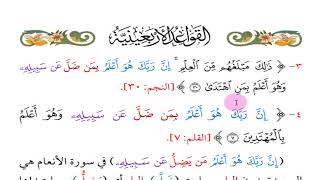 القواعد الأربعينية
٣- ﴿ذَٰلِكَ مَبْلَغُهُم مِّنَ ٱلْعِلْمِ ۚ إِنَّ رَبَّكَ هُوَ أَعْلَمُ بِمَن ضَلَّ عَن سَبِيلِهِۦ
وَهُوَ أَعْلَمُ بِمَنِ ٱهْتَدَىٰ ۝٣٠﴾ [النجم: ٣٠].
٤- ﴿إِنَّ رَبَّكَ هُوَ أَعْلَمُ بِمَن ضَلَّ عَن سَبِيلِهِۦ وَهُوَ أَعْلَمُ
بِٱلْمُهْتَدِينَ ۝٧﴾ [القلم: ٧].
﴿إِنَّ رَبَّكَ هُوَ أَعْلَمُ مَن يَضِلُّ عَن سَبِيلِهِۦ﴾ في سورة الأنعام هي